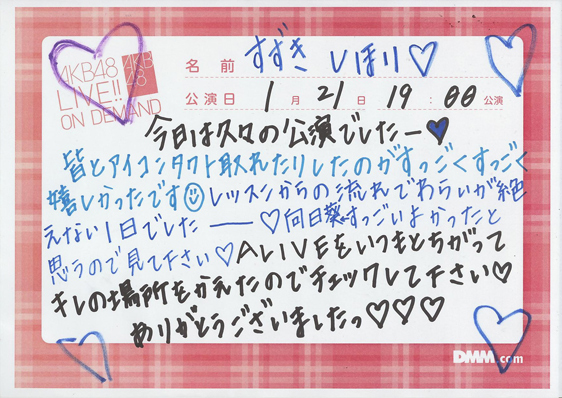 AKB48
LIVE!!
ON DEMAND
AKB
48
名前 すずき しほり♡
公演日 1月21日 19:00公演
今日は久々の公演でしたー♥
皆とアイコンタクト取れたりしたのがすっごくすっごく
嬉しかったです☺レッスンからの流れでわらいが絶
えない1日でした――♡向日葵すっごいよかったと
思うので見て下さい♡ALIVEをいつもとちがって
キレの場所をかえたのでチェックして下さい♡
ありがとうございましたっ♡♡♡
DMM.com